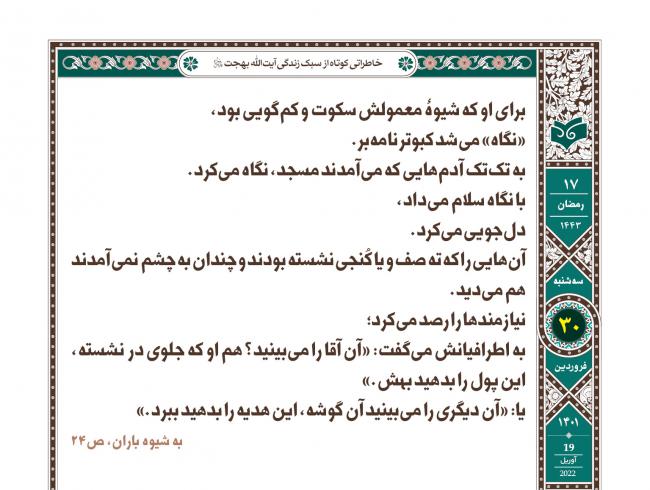 خاطراتی کوتاه از سبک زندگی آیت‌الله بهجت
برای او که شیوهٔ معمولش سکوت و کم‌گویی بود،
«نگاه» می‌شد کبوتر نامه‌بر.
به تک‌تک آدم‌هایی که می‌آمدند مسجد، نگاه می‌کرد.
با نگاه سلام می‌داد،
دل‌جویی می‌کرد.
آن‌هایی را که ته صف و یا کُنجی نشسته بودند و چندان به چشم نمی‌آمدند
هم می‌دید.
نیازمندها را رصد می‌کرد؛
به اطرافیانش می‌گفت: «آن آقا را می‌بینید؟ هم او که جلوی در نشسته،
این پول را بدهید بهش.»
یا: «آن دیگری را می‌بینید آن گوشه، این هدیه را بدهید ببرد.»
به شیوه باران، ص۲۴
۱۷
رمضان
۱۴۴۳
سه‌شنبه
۳۰
فروردین
۱۴۰۱
19
آوریل
2022